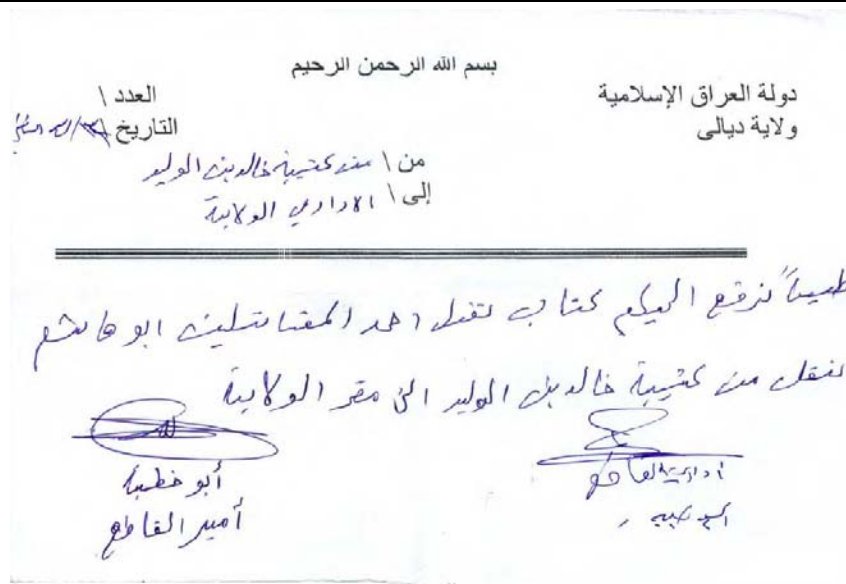 بسم الله الرحمن الرحيم
دولة العراق الإسلامية
ولاية ديالى
العدد \
التاريخ \
من \ من كتيبة خالد بن الوليد
إلى \ الاداري الولاية
نرفع اليكم كتاب نقل احد المقاتلين ابو هاشم
نقل من كتيبة خالد بن الوليد الى مقر الولاية
القاطع
أبو خطاب
أمير القاطع